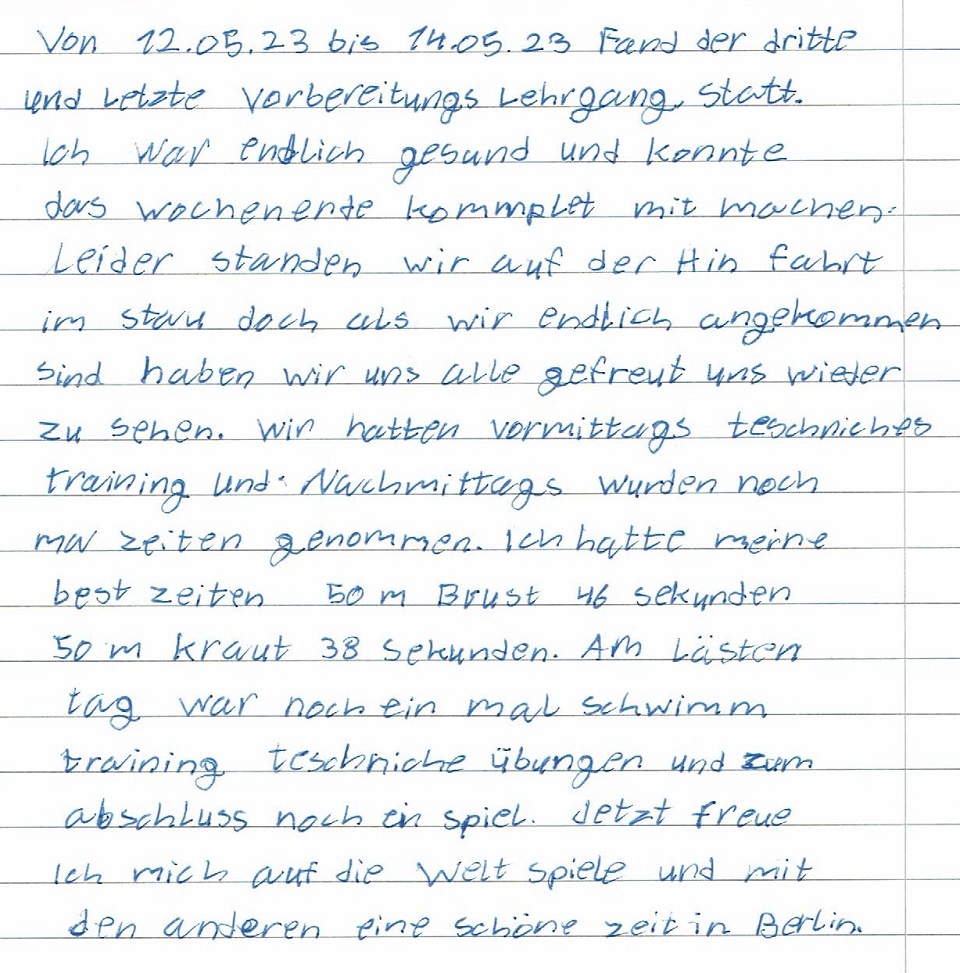 Von 12.05.23 bis 14.05.23 Fand der dritte
und Letzte Vorbereitungs Lehrgang, statt.
Ich war endlich gesund und konnte
das wochenende kommplet mit machen.
Leider standen wir auf der Hin fahrt
im stau doch als wir endlich angekommen
sind haben wir uns alle gefreut uns wieder
zu sehen. wir hatten vormittags teschniches
training und Nachmittags wurden noch
mal zeiten genommen. Ich hatte meine
best zeiten 50 m Brust 46 sekunden
50 m kraut 38 Sekunden. Am Lästen
tag war noch ein mal schwimm
training teschniche übungen und zum
abschluss noch ein spiel. Jetzt freue
Ich mich auf die Welt spiele und mit
den anderen eine schöne zeit in Berlin.